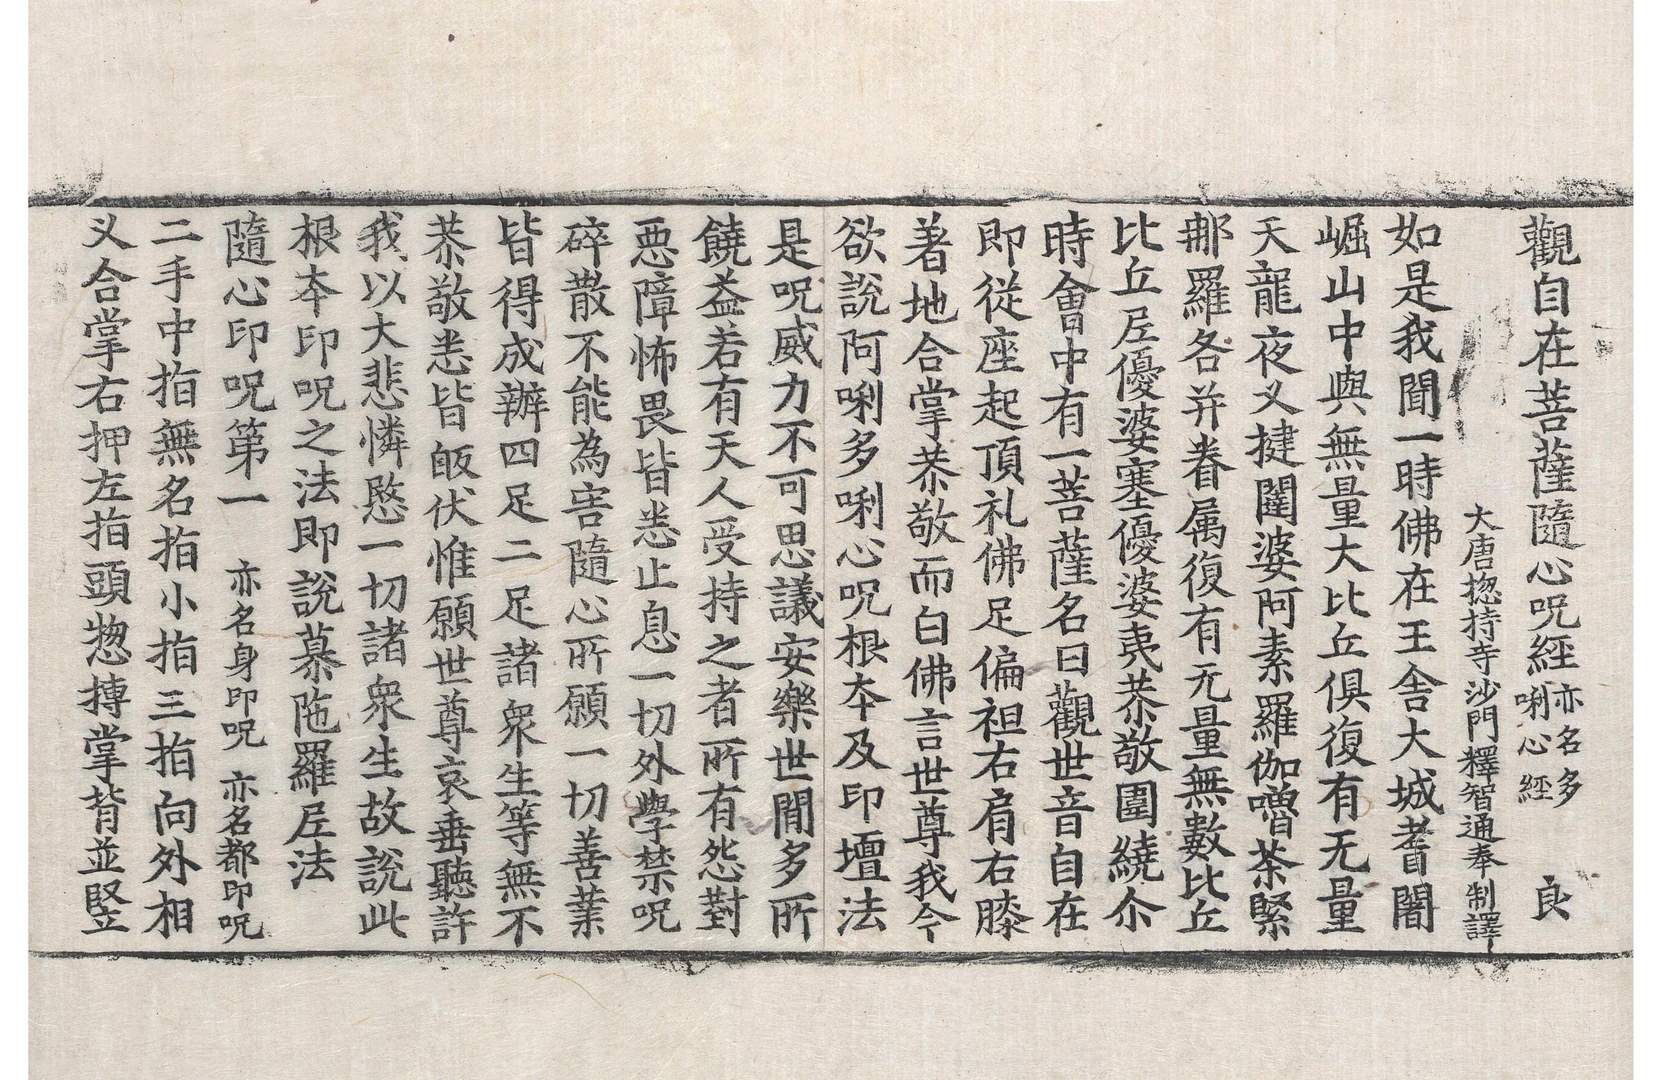 觀自在菩薩隨心呪經 亦名多唎心經 良
大唐揔持寺沙門釋智通奉制譯
如是我聞一時佛在王舍大城耆闍
崛山中與無量大比丘俱復有无量
天龍夜叉揵闥婆阿素羅伽嚕茶緊
那羅各并眷属復有无量無數比丘
比丘尼優婆塞優婆夷恭敬圍繞尒
時會中有一菩薩名曰觀世音自在
即從座起頂礼佛足偏袒右肩右膝
著地合掌恭敬而白佛言世尊我今
欲說阿唎多唎心呪根本及印壇法
是呪威力不可思議安樂世間多所
饒益若有天人受持之者所有怨對
惡障怖畏皆悉止息一切外學禁呪
碎散不能為害隨心所願一切善業
皆得成辦四足二足諸衆生等無不
恭敬悉皆皈伏惟願世尊哀垂聽許
我以大悲憐愍一切諸衆生故說此
根本印呪之法即說慕陁羅尼法
隨心印呪第一 亦名身印呪 亦名都印呪
二手中指無名指小指三指向外相
叉合掌右押左指頭惣摶掌背並竪